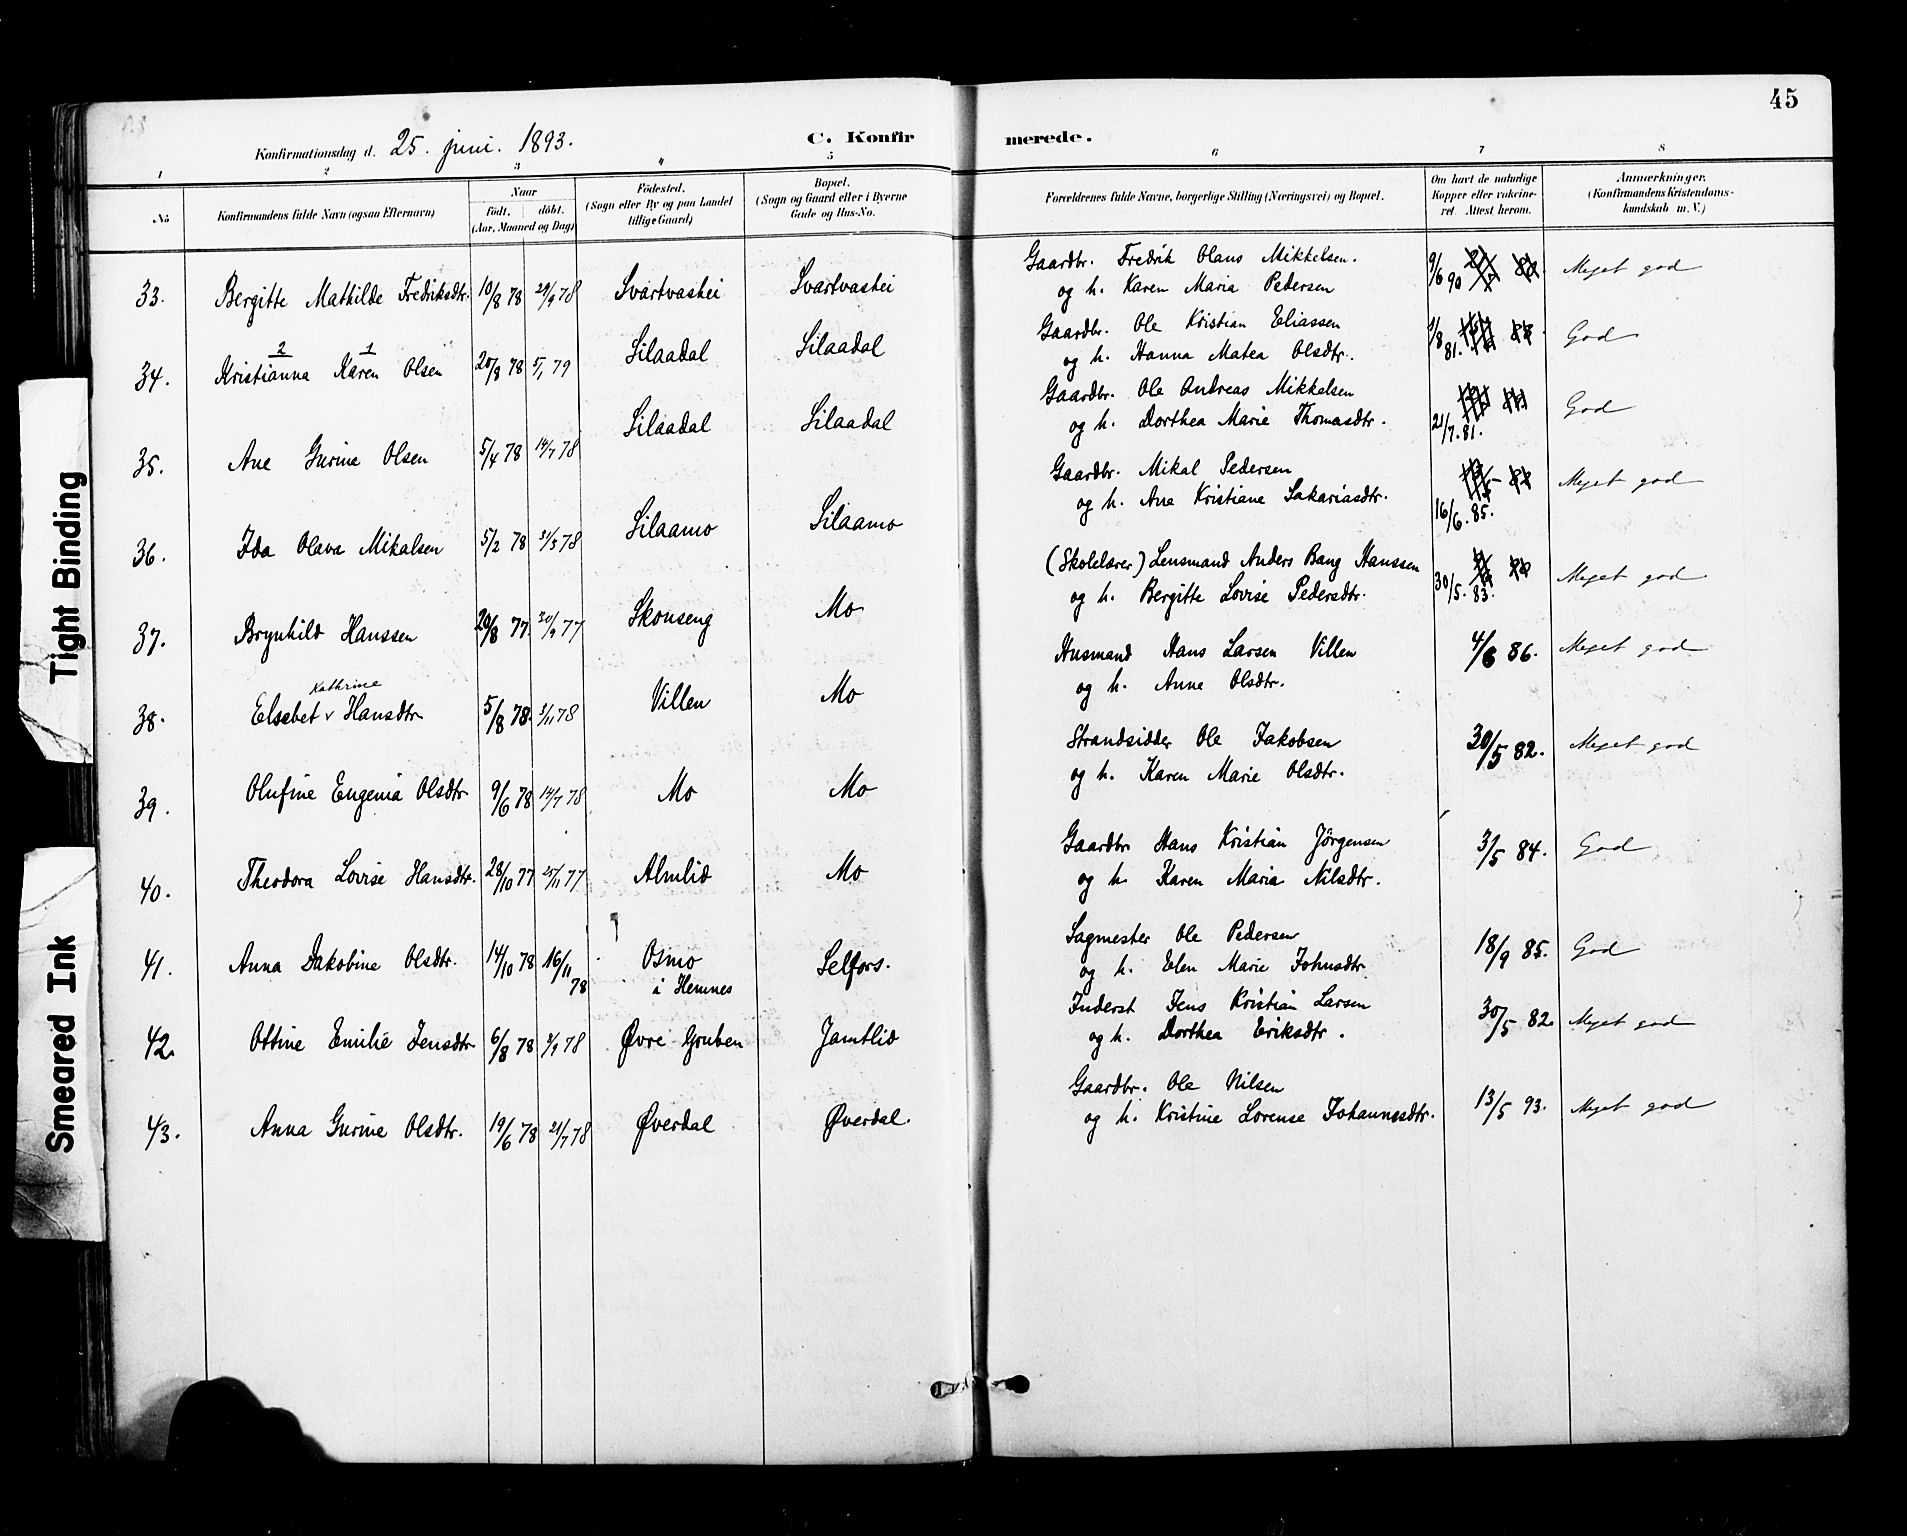 45
Konfirmationsdag d. 25. juni. 1893. C. Konfirmerede.
1 2 3 4 5 6 7 8
No Konfirmandens fulde Navn (ogsaa Efternavn) Naar født, døbt. (Aar, Maaned og Dag) Fødested. (Sogn eller By og paa Landet tillige Gaard) Bopæl. (Sogn og Gaard eller i Byerne Gade og Hus-No. Forældrenes fulde Navne, borgerlige Stilling (Næringsvei) og Bopæl. Om havt de naturlige Kopper eller vakcineret. Attest herom. Anmærkninger. (Konfirmandens Kristendomskundskab m. V.)
33. Bergitte Mathilde Fredriksdtr. 10/8 78 29/9 78 Svartvashei Svartvashei Gaardbr. Fredrik Olaus Mikkelsen. 9/6 90 Meget god
og h. Karen Maria Pedersen
34. Kristianna 2 Karen 1 Olsen 20/8 78 5/1 79 Silaadal Silaadal Gaardbr. Ole Kristian Eliassen 1/8 81. God
og h. Hanna Matea Olsdtr.
35. Ane Gurine Olsen 5/4 78 14/7 78 Silaadal Silaadal Gaardbr. Ole Andreas Mikkelsen 21/7. 81. God
og h. Dorthea Marie Thomasdtr.
36. Ida Olava Mikalsen 5/2 78 31/3 78 Silaamo Silaamo Gaardbr. Mikal Pedersen 16/6. 85. Meget god
og h. Ane Kristiane Sakariasdtr.
37. Brynhild Hanssen 20/8 77. 30/9 77 Skonseng Mo (Skolelærer) Lensmand Anders Bang Hanssen 30/5. 83. Meget god
og h. Bergitte Lovise Pedersdtr.
38. Elsebet Kathrine Hansdtr 5/8 78. 3/11 78 Villen Mo Husmand Hans Larsen Villen 4/6 86. Meget god
og h. Anne Olsdtr.
39. Olufine Eugenia Olsdtr 9/6 78 14/7 78 Mo Mo Strandsidder Ole Jakobsen 30/5 82. Meget god
og h. Karen Marie Olsdtr.
40. Theodora Lovise Hansdtr. 28/10 77 25/11 77 Almlid Mo Gaardbr Hans Kristian Jörgensen 31/5 84. God
og h. Karen Maria Nilsdtr.
41. Anna Jakobine Olsdtr. 14/10 78 16/11 78 Osmo i Hemnes Selfors. Sagmester Ole Pedersen 18/9 85. God
og h. Elen Marie Johnsdtr
42. Ottine Emilie Jensdtr 6/8 78 78 Øvre Gruben Jamtlid Inderst Jens Kristian Larsen 30/5 82. Meget god
og h. Dorthea Eriksdtr.
43. Anna Gurine Olsdtr. 19/6 78 21/7 78 Øverdal Øverdal. Gaardbr. Ole Nilsen 13/5 93. Meget god
og h. Kristine Lorense Johannesdtr.
Tight Binding
Smeared Ink